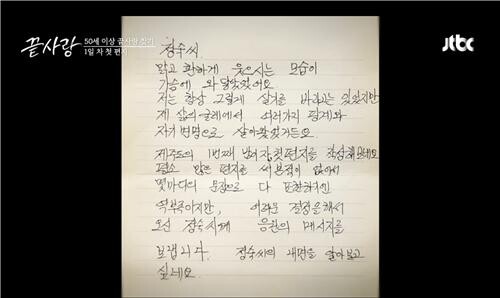 끝사랑
50세 이상 끝사랑 찾기
1일 차 첫 편지
jtbc
정숙씨
맑고 환하게 웃으시는 모습이
가슴에 와 닿았었어요
저는 항상 그렇게 살기를 바라고는 있었지만
제 삶의 굴레에서 여러가지 핑계와
자기변명으로 살아왔었거든요.
제주도의 1번째 밤이자, 첫편지를 작성해보네요
평소 많은 편지를 써본적이 없어서
몇마디의 문장으로 다 표현하기엔
역부족이지만, 어려운 결정을 해서
오신 정숙씨께 응원의 메시지를
보냅니다. 정숙씨의 내면을 알아보고
싶네요.